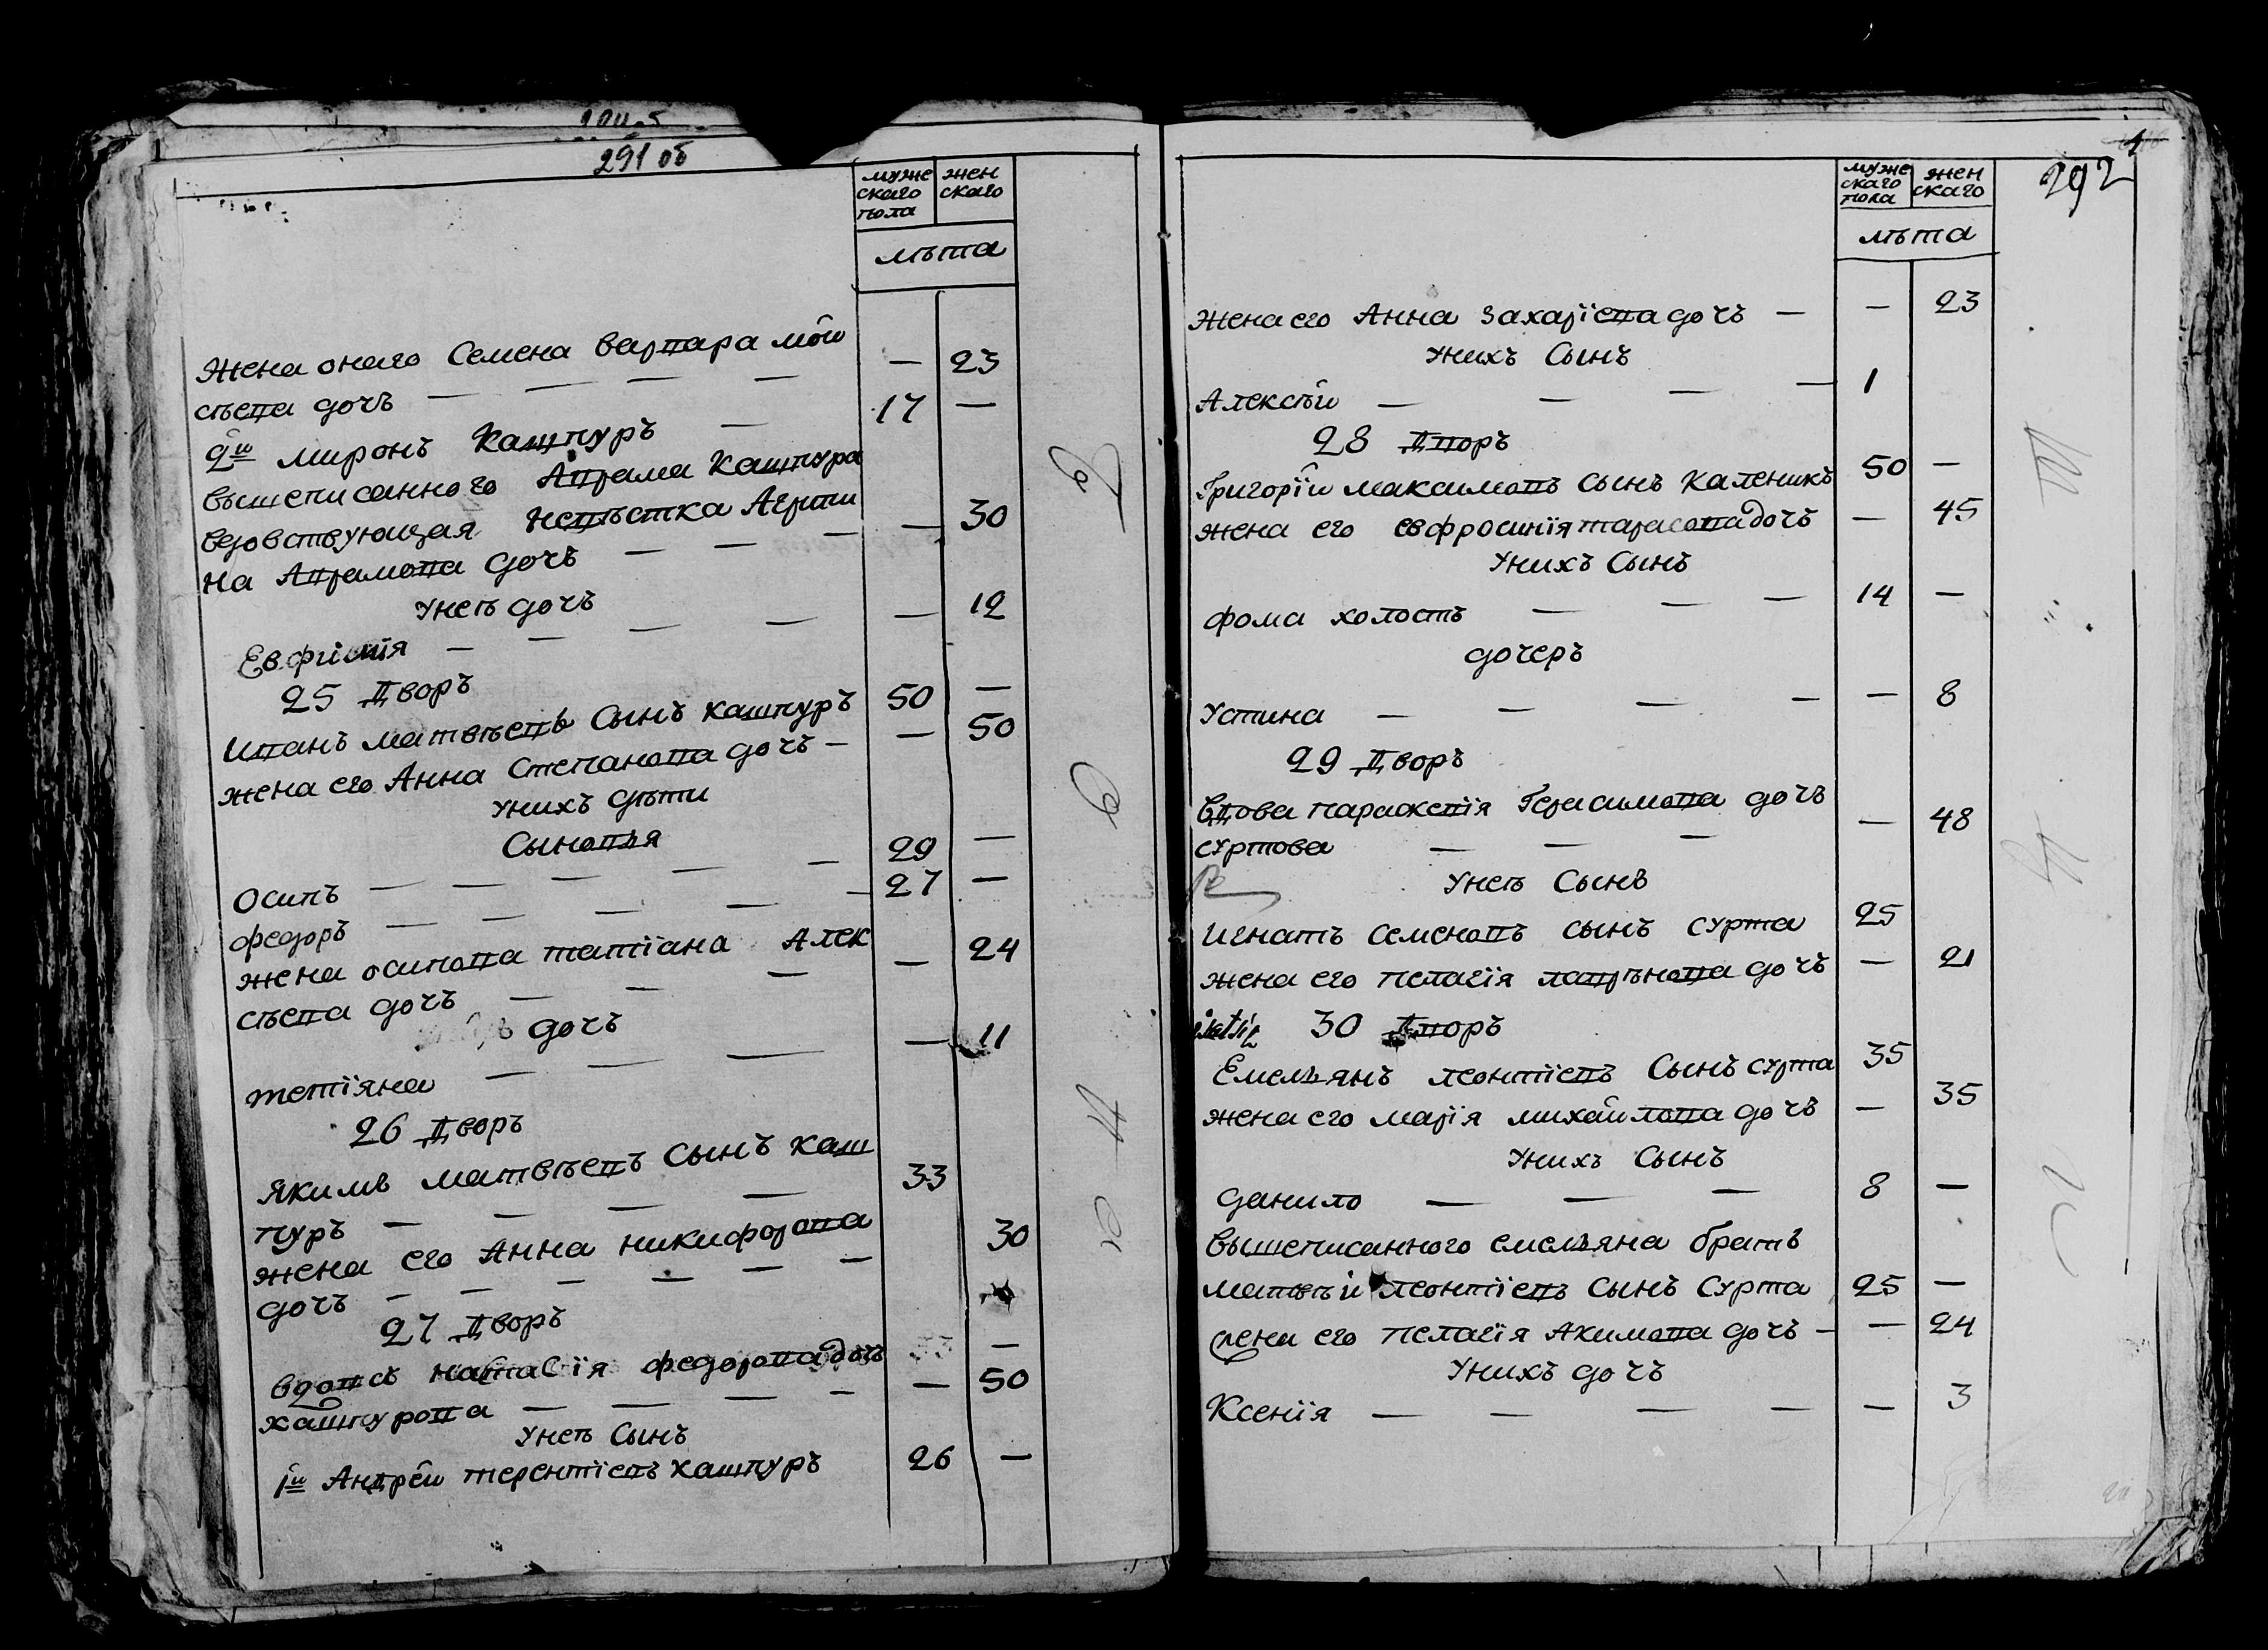 291 об
муже
скаго
пола
жен
скаго
лѣта
Жена онаго Семена варвара мой — 23
сѣева дочъ — — — —
2й миронъ Кашпуръ — 17 —
вышеписанного Аврама Кашпура
вдовствующая невѣстка Агрпи
на Аврамова дочъ — — — — 30
Унеѣ дочъ
Евфимія — — — — — 12
25 Дворъ
Иванъ матвѣевъ Сынъ кашпуръ 50 —
жена его Анна Степанова дочъ — — 50
унихъ дѣти
Сыновья
Осипъ — — — — — 29 —
федоръ — — — — — 27 —
жена осипова татіана Алек
сѣева дочъ — — — — 24
дочъ
тетіяна — — — — 11
26 Дворъ
Якимъ матвѣевъ Сынъ каш
пуръ — — — — 33
жена его Анна никифорова
дочъ — — — — — — 30
27 Дворъ
вдова федорова дочъ —
кашпурова — — — — 50
Унеѣ Сынъ
1й Андрѣй терентіевъ кашпуръ 26 —
292
муже
скаго
пола
жен
скаго
лѣта
жена его Анна захаріева дочъ — — 23
Унихъ Сынъ
Алексѣй — — — — 1
28 Дворъ
Григорій максимовъ сынъ каленикъ 50 —
жена его евфросинія тарасова дочъ — 45
Унихъ Сынъ
фома холостъ — — — 14 —
дочеръ
Устина — — — — — 8
29 Дворъ
вдова параскевія Герасимова дочъ
суртова — — — — 48
Унеѣ Сынъ
Игнатъ семеновъ сынъ сурта 25
жена его пелагія лаврѣнова дочъ — 21
30 Дворъ
Емельянъ леонтіевъ Сынъ сурта 35
жена его марія михайлова дочъ — 35
Унихъ Сынъ
данило — — — 8 —
вышеписанного емельяна братъ
матвѣй леонтіевъ сынъ сурта 25 —
жена его пелагія Акимова дочъ — — 24
Унихъ дочъ
Ксенія — — — — — 3